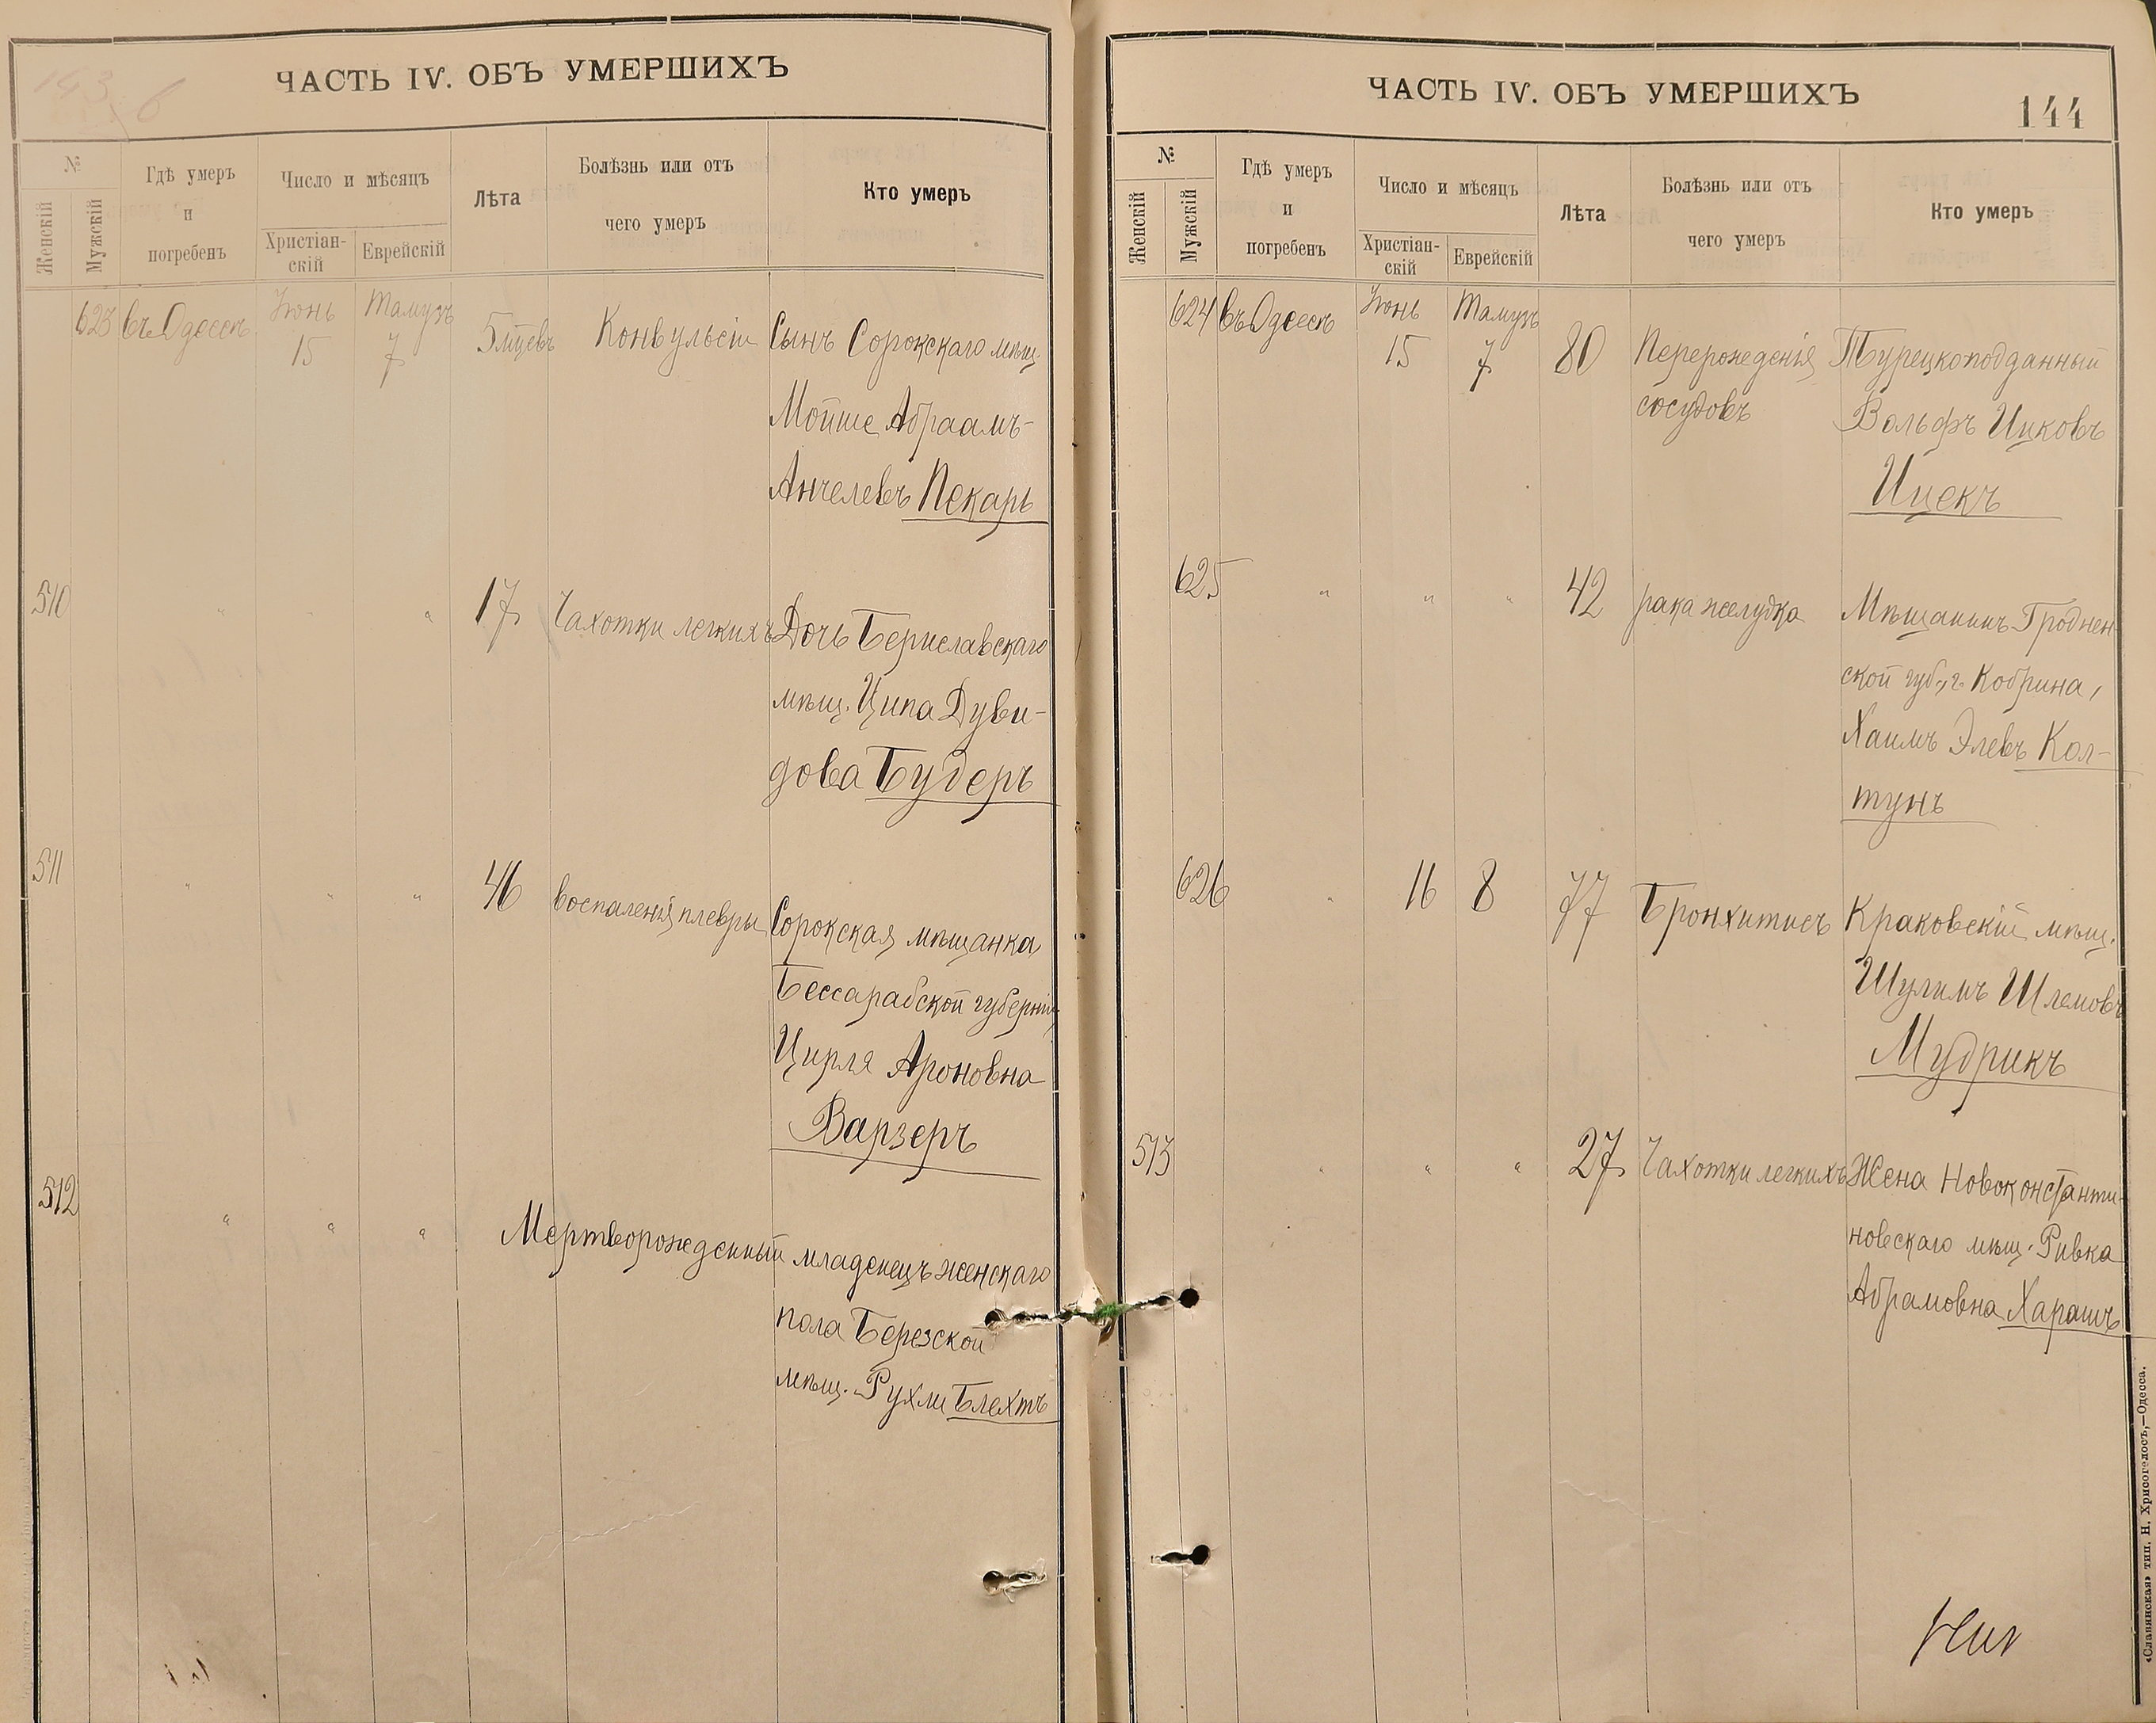 ЧАСТЬ IV. ОБЪ УМЕРШИХЪ
№
Женскій
Мужскій
Гдѣ умеръ
и
погребенъ
Число и мѣсяцъ
Христіан-
скій
Еврейскій
Лѣта
Болѣзнь или отъ
чего умеръ
Кто умеръ
623 въ Одессѣ Іюнь 15 Тамузъ 7 5 мцевъ Конвульсіи Сынъ Сорокскаго мѣщ.
Мойше Абраамъ-
Анчелевъ Пекарь
510 " " " 17 Чахотки легкихъ Дочь Бериславскаго
мѣщ. Ципа Дуви-
дова Будеръ
511 " " " 46 воспаленія плевры Сорокская мѣщанка
Бессарабской губерніи
Цирля Ароновна
Варзеръ
512 " " " Мертворожденный младенецъ женскаго
пола Березской
мѣщ. Рухли Блехтъ
ЧАСТЬ IV. ОБЪ УМЕРШИХЪ
144
№
Женскій
Мужскій
Гдѣ умеръ
и
погребенъ
Число и мѣсяцъ
Христіан-
скій
Еврейскій
Лѣта
Болѣзнь или отъ
чего умеръ
Кто умеръ
624 въ Одессѣ Іюнь 15 Тамузъ 7 80 Перерожденія Турецкоподданный
сосудовъ Вольфъ Ицковъ
Ицекъ
625 " " " 42 рака желудка Мѣщанинъ Гроднен-
ской губ., г. Кобрина,
Хаимъ Элевъ Кол-
тунъ
626 " 16 8 77 Бронхитисъ Краковскій мѣщ.
Шулимъ Шлемовъ
Мудрикъ
513 " " " 27 Чахотки легкихъ Жена Новоконстанти-
новскаго мѣщ. Ривка
Абрамовна Харашъ
«Славянская» тип. Н. Хрисогелосъ,—Одесса.